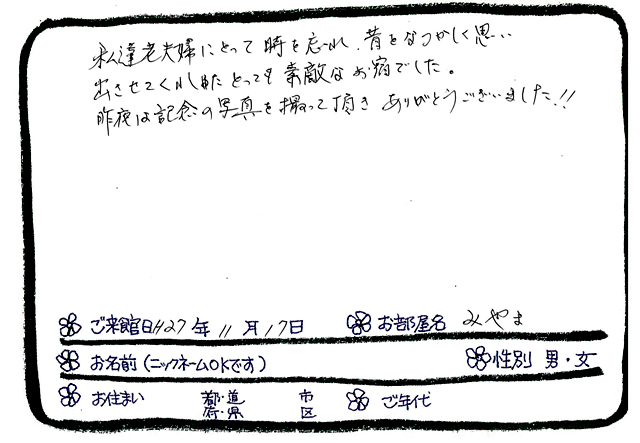 私達老夫婦にとって時を忘れ、昔をなつかしく思い
出させてくれしめたとっても素敵なお宿でした。
昨夜は記念の写真を撮って頂きありがとうございました!!
ご来館日 H27年 11月 17日 お部屋名 みやま
お名前(ニックネームOKです) 性別 男・女
お住まい 都・道 市 ご年代
府・県 区